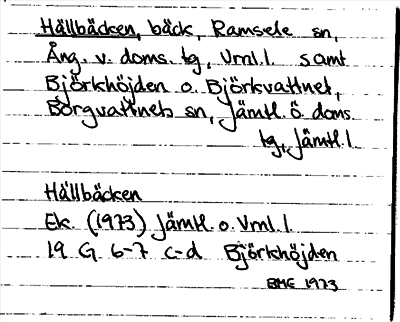 Hällbäcken, bäck, Ramsele sn,
Ång. v. doms. tg, Vrnl. l. samt
Björkhöjden o. Björkvattnet,
Borgvattnets sn, Jämtl. ö. doms.
tg, Jämtl. l.
Hällbäcken
Ek. (1973) Jämtl. o. Vrnl. l.
19 G 6-7 c-d Björkhöjden
BME 1973